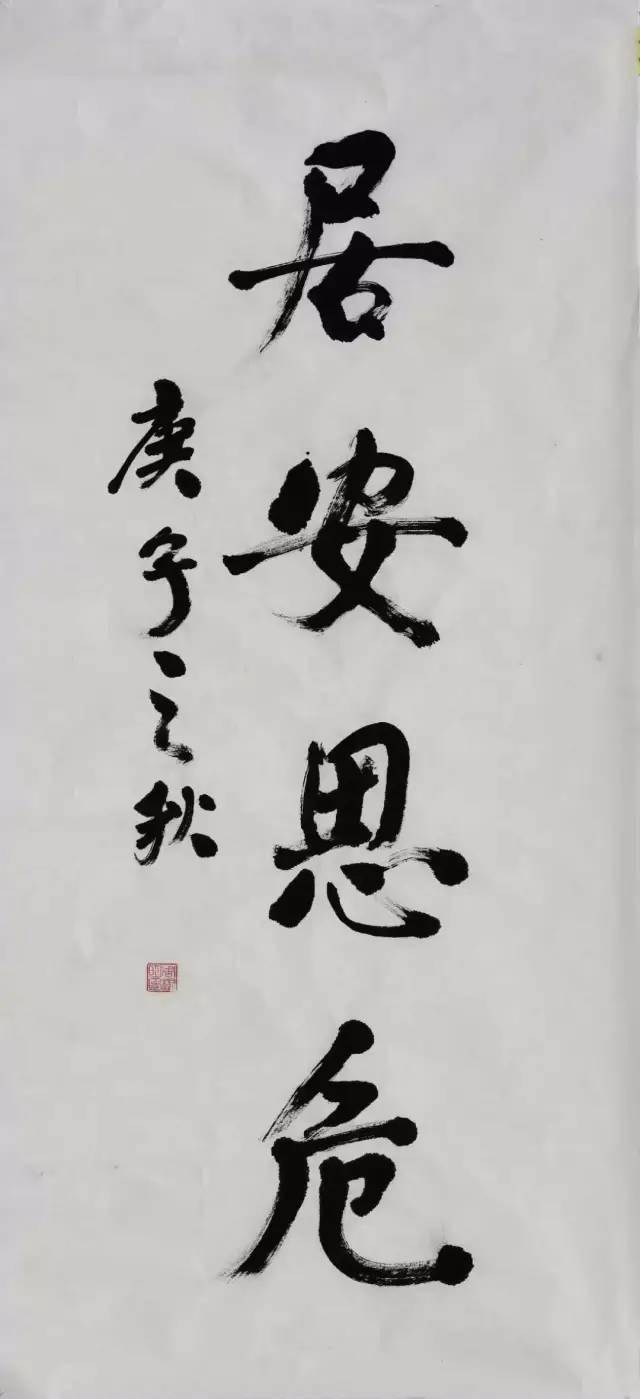 居安思危
庚子之秋